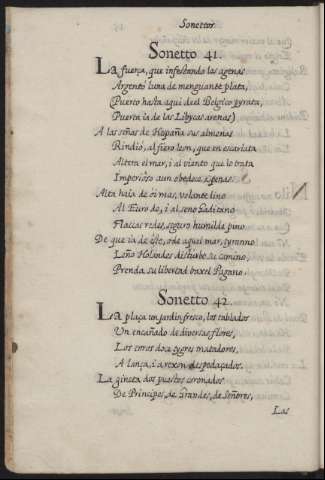 Sonettos
Sonetto 41.
La fuerça, que infestando las agenas
Argentò luna de menguante plata,
(Puerto hasta aqui del Belgico pyrata,
Puerta ia de las Lybycas arenas)
A las señas de España sus almenas
Rindiò, al fiero leon, que en escarlata
Altera el mar, i al viento que lo trata
Imperioso aun obedece apenas.
Alta haia de oi mas, volante lino
Al Euro dè, i al seno Gaditano
Flaccas redes, seguro humilde pino
De que ia deste, o de aquel mar, tyranno
Leño Holandes disturbe su camino,
Prenda su libertad baxel Pagano.
Sonetto 42
La plaça un jardin fresco, los tablados
Un encañado de diversas flores,
Los toros doze tygres matadores,
A lança, i a rexon despedaçados.
La gineta dos puestos coronados
De Principes, de Grandes, de Señores,
Las